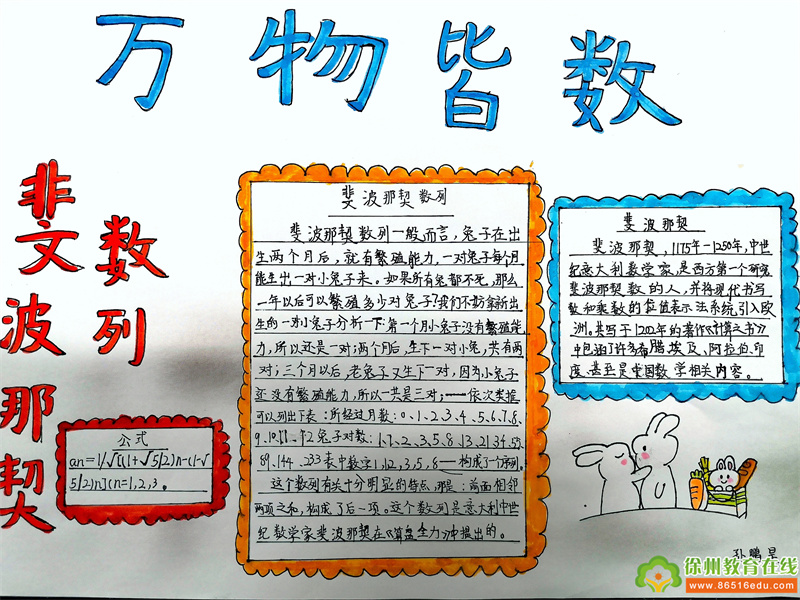 万物皆数
斐波那契
数列
公式
an=1/√[(1+√5/2)n-(1-√
5/2)n](n=1,2,3.
斐波那契数列
斐波那契数列一般而言，兔子在出
生两个月后，就有繁殖能力，一对兔子每个月
能生出一对小兔子来。如果所有兔都不死，那么
一年以后可以繁殖多少对兔子?我们不妨拿新出
生的一对小兔子分析一下:第一个月小兔子没有繁殖能
力，所以还是一对;两个月后，生下一对小兔，共有两
对;三个月以后，老兔子又生下一对，因为小兔子
还没有繁殖能力，所以一共是三对;——依次类推
可以列出下表:所经过月数:0、1、2、3、4、5、6、7、8、
9、10、11、12兔子对数:1、1、2、3、5、8、13、21、34、55、
89、144、233表中数字1,1,2,3,5,8——构成了一个序列。
这个数列有关十分明显的特点，那是:前面相邻
两项之和，构成了后一项。这个数列是意大利中世
纪数学家斐波那契在《算盘全力》中提出的。
斐波那契
斐波那契，1175年-1250年，中世
纪意大利数学家，是西方第一个研究
斐波那契数的人，并将现代书写
数和乘数的位值表示法系统引入欧
洲。其写于1202年的著作《计算之书》
中包涵了许多希腊、埃及、阿拉伯、印
度、甚至是中国数学相关内容。
孙鹏
徐州教育在线
www.86516edu.com